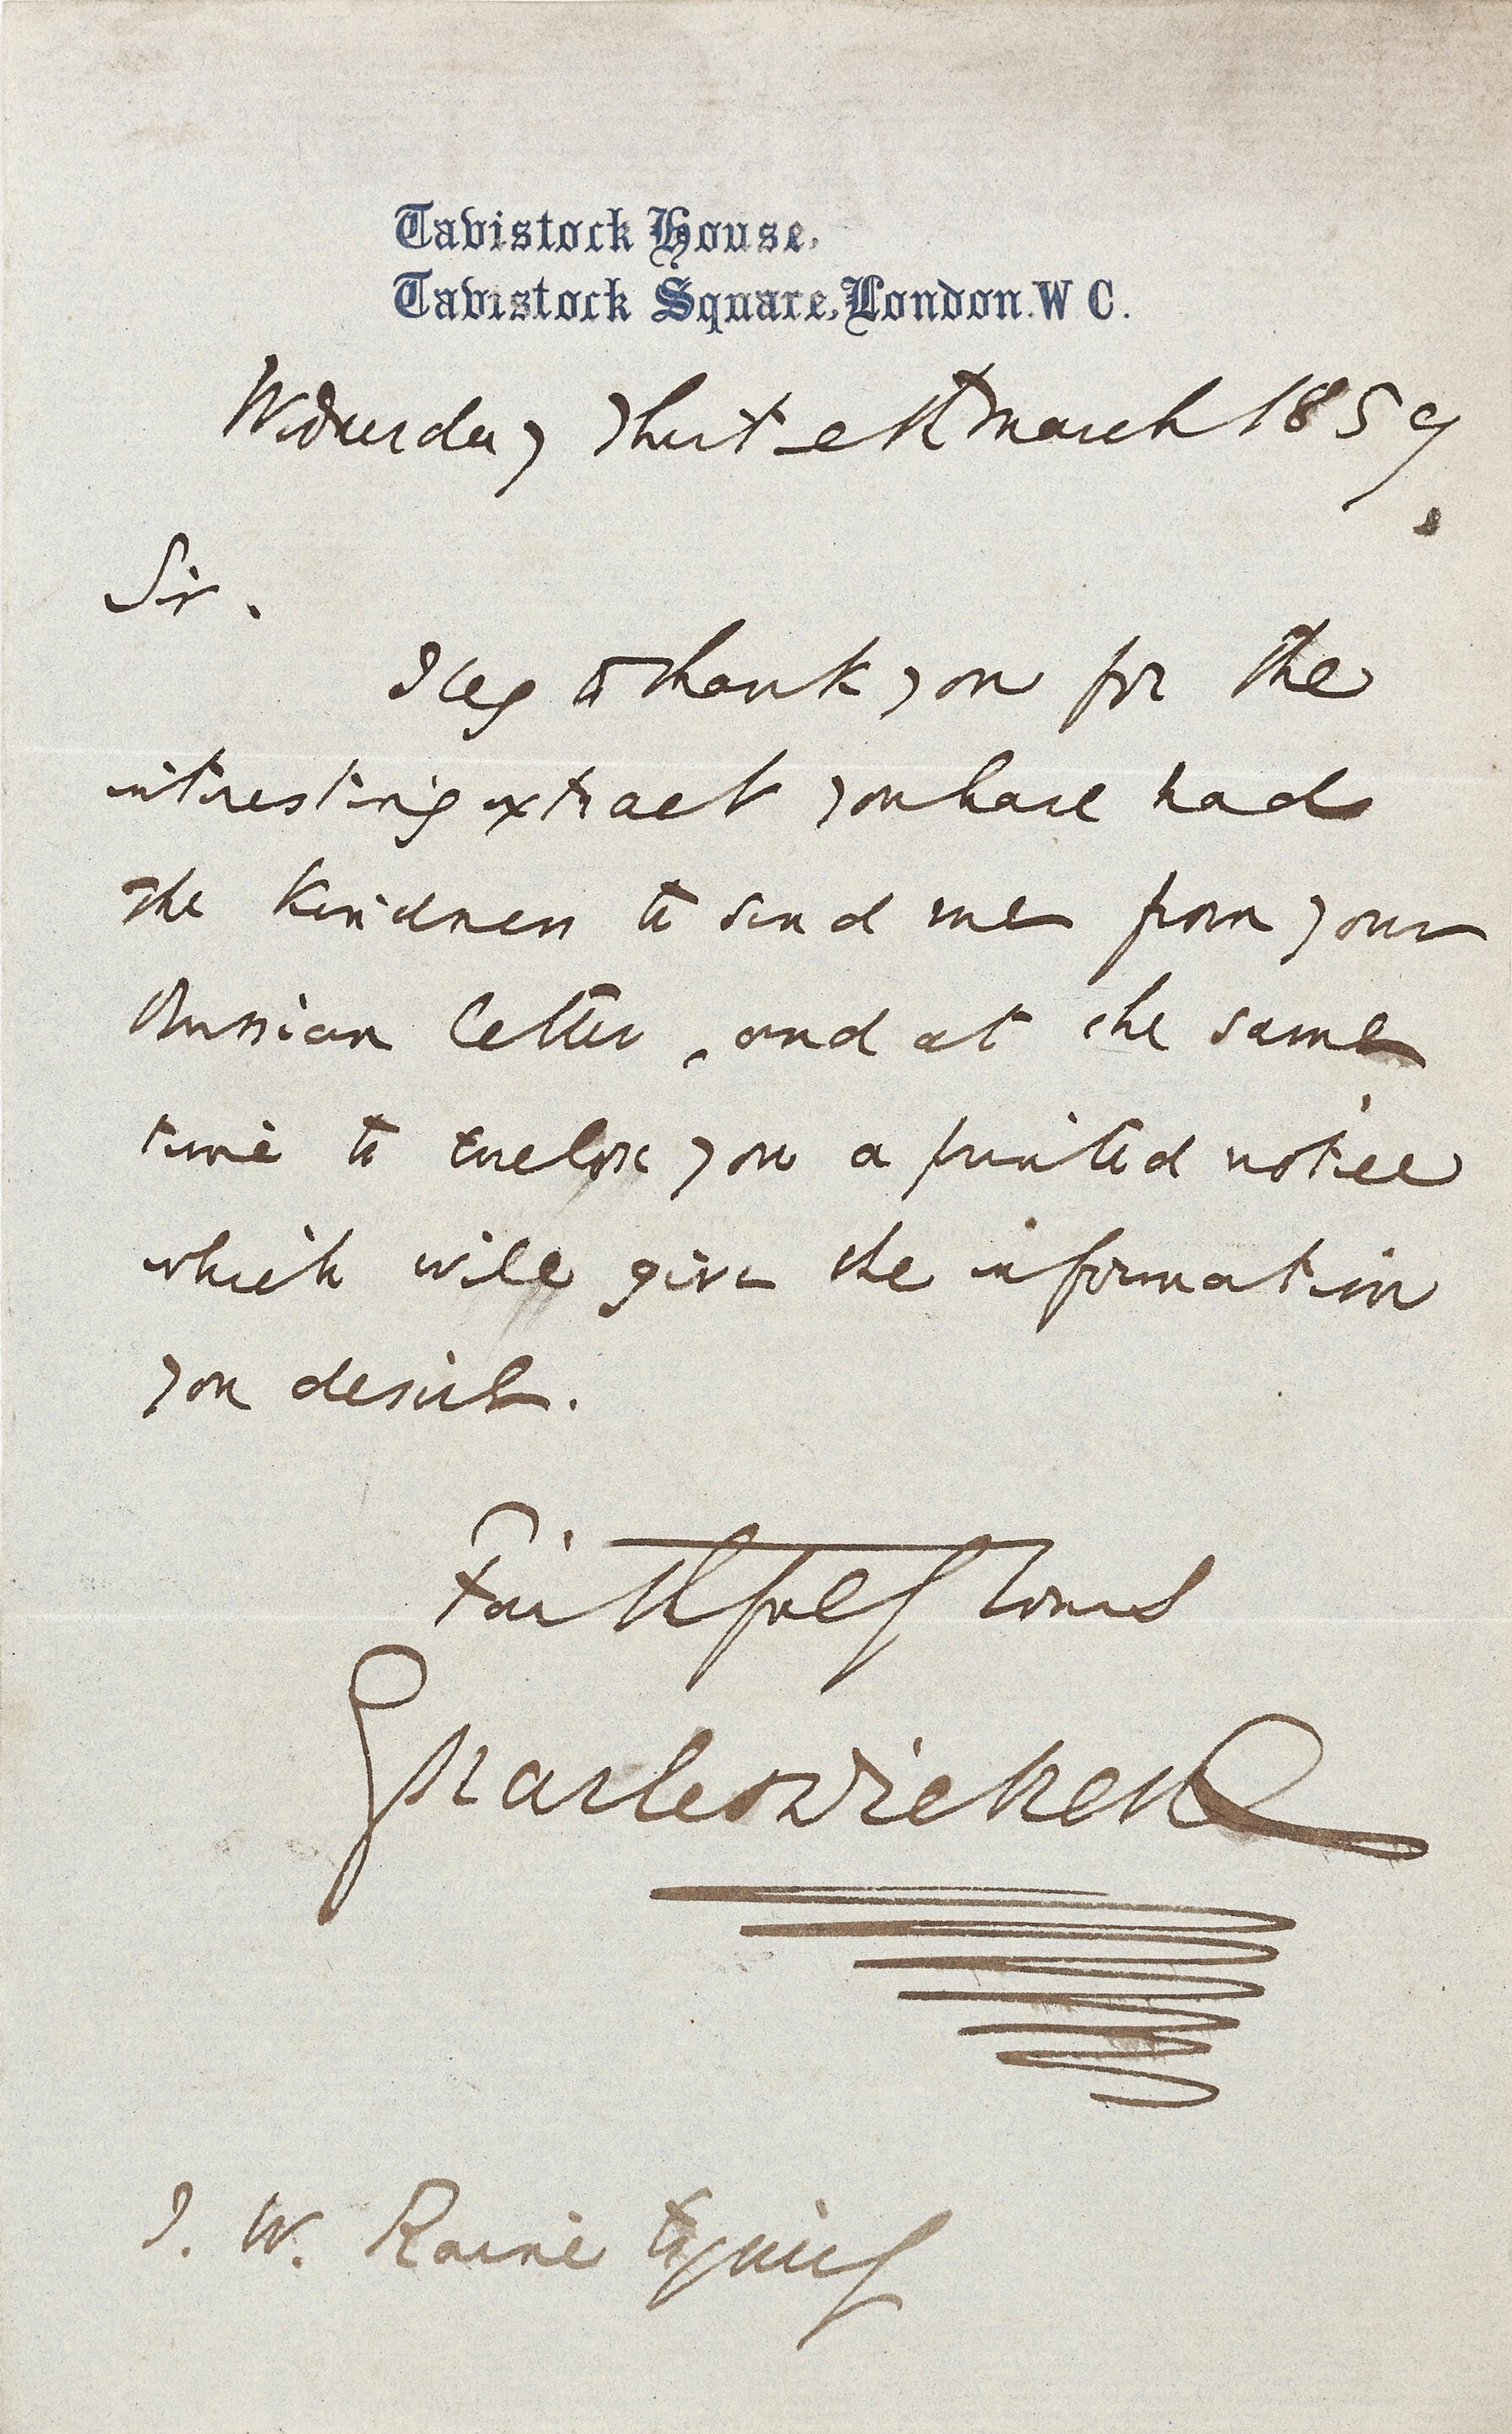 Tavistock House,
Tavistock Square, London. W C.
Wednesday Thirtieth March 1859.
Sir.
I beg to thank you for the
interesting extract you have had
the kindness to send me from your
Russian letter, and at the same
time to enclose you a printed notice
which will give the information
you desire.
Faithfully Yours
Charles Dickens
J. W. Raine Esquire